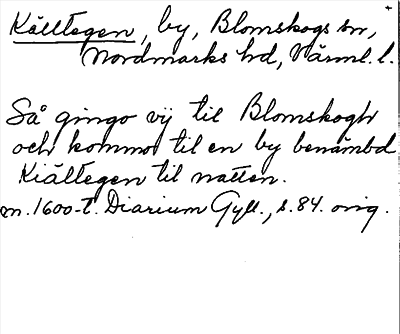 Källtegen, by, Blomskogs sn,
Nordmarks hd, Värml. l.
Så gingo vij til Blomskogh
och kommo til en by benämbd
Kiältegen til natten.
m. 1600-t. Diarium Gyll., s. 84. orig.